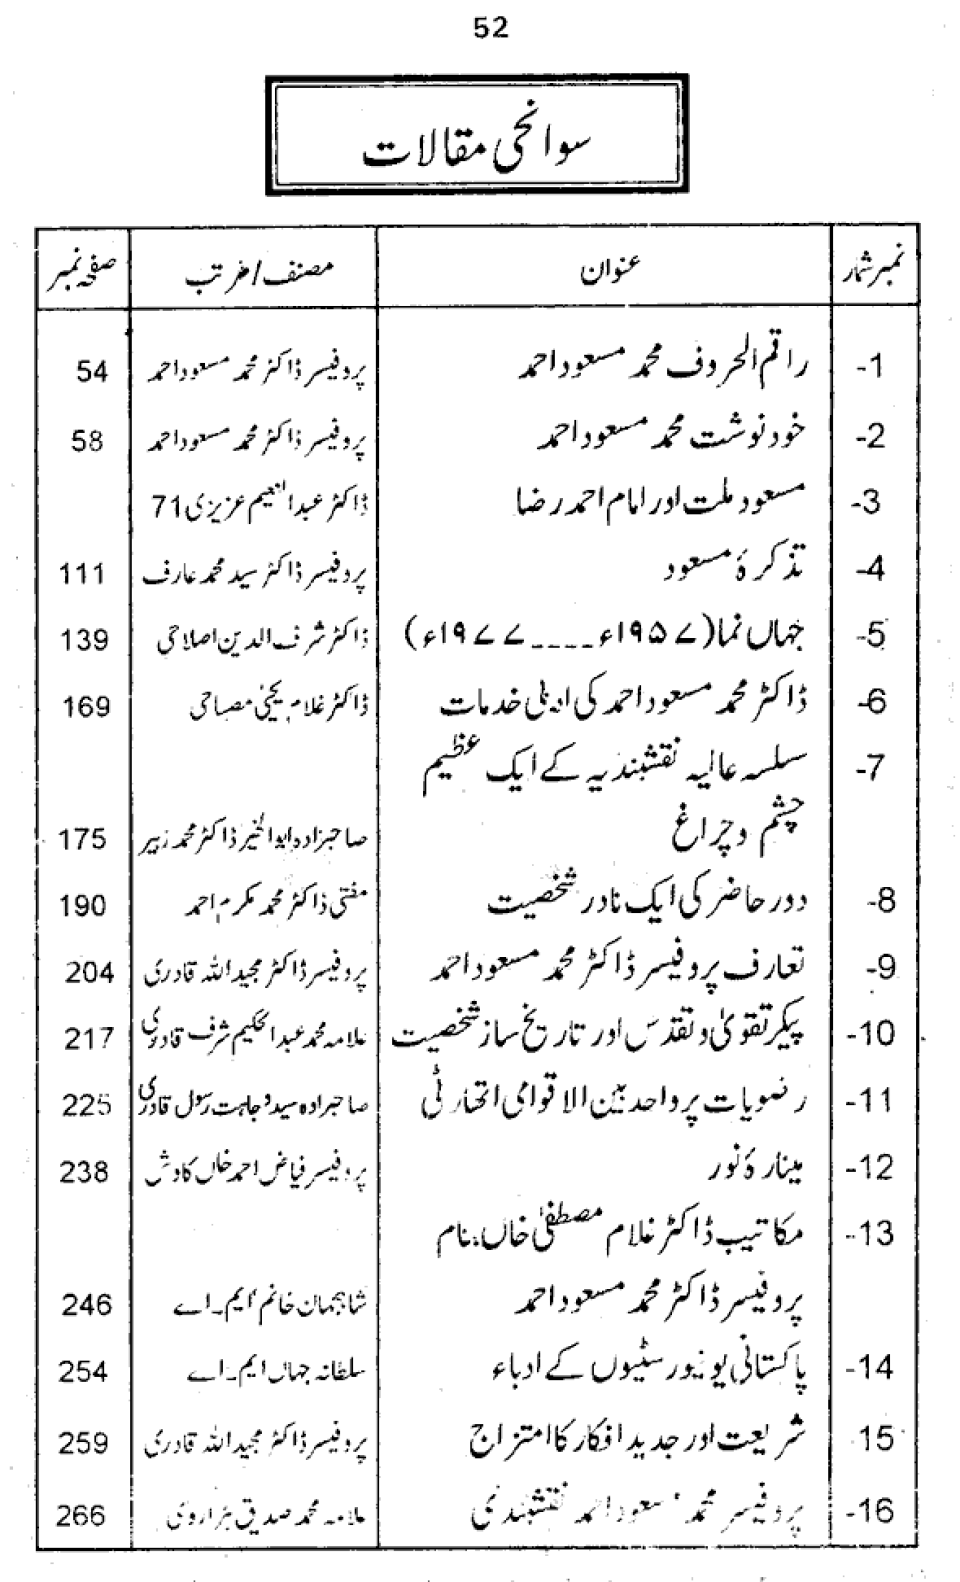 52
سوانحی مقالات
نمبر شمار عنوان مصنف/مرتب صفحہ نمبر
1- راقم الحروف محمد مسعود احمد پروفیسر ڈاکٹر محمد مسعود احمد 54
2- خود نوشت محمد مسعود احمد پروفیسر ڈاکٹر محمد مسعود احمد 58
3- مسعود ملت اور امام احمد رضا ڈاکٹر عبدالنعیم عزیزی 71
4- تذکرۂ مسعود پروفیسر ڈاکٹر سید محمد عارف 111
5- جہاں نما (۱۹۵۷ء ـــــ ۱۹۷۷ء) ڈاکٹر شرف الدین اصلاحی 139
6- ڈاکٹر محمد مسعود احمد کی ادبی خدمات ڈاکٹر غلام یحیٰی مصباحی 169
7- سلسہ عالیہ نقشبندیہ کے ایک عظیم
چشم و چراغ صاحبزادہ ابوالخیر ڈاکٹر محمد زبیر 175
8- دور حاضر کی ایک نادر شخصیت مفتی ڈاکٹر محمد مکرم احمد 190
9- تعارف پروفیسر ڈاکٹر محمد مسعود احمد پروفیسر ڈاکٹر مجید اللہ قادری 204
10- پیکر تقویٰ و تقدس اور تاریخ ساز شخصیت علامہ محمد عبدالحکیم شرف قادری 217
11- رضویات پر واحد بین الاقوامی اتھارٹی صاحبزادہ سید وجاہت رسول قادری 225
12- مینارۂ نور پروفیسر فیاض احمد خاں کاوش 238
13- مکاتیب ڈاکٹر غلام مصطفیٰ خاں بنام
پروفیسر ڈاکٹر محمد مسعود احمد شاہجہان خانم ایم۔اے 246
14- پاکستانی یونیورسٹیوں کے ادباء سلطانہ جہاں ایم۔اے 254
15- شریعت اور جدید افکار کا امتزاج پروفیسر ڈاکٹر مجید اللہ قادری 259
16- پروفیسر محمد مسعود احمد نقشبندی علامہ محمد صدیق ہزاروی 266